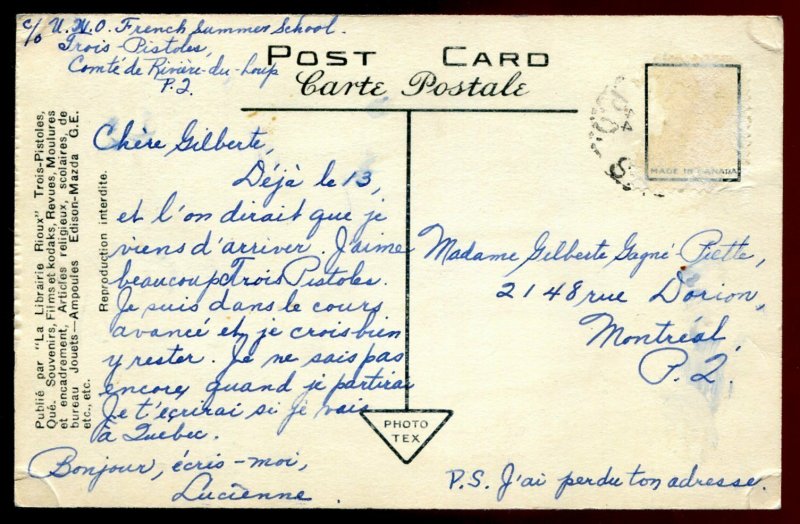 c/o U.W.O. French Summer School.
Trois-Pistoles,
Comté de Rivière-du-Loup
P.Q.
POST CARD
Carte Postale
MADE IN CANADA
Chère Gilberte,
Déjà le 13,
et l'on dirait que je
viens d'arriver. J'aime
beaucoup Trois Pistoles.
Je suis dans le cours
avancé et je crois bien
y rester. Je ne sais pas
encore quand je partirai
Je t'écrirai si je vais
à Québec.
Bonjour, écris-moi,
Lucienne.
Madame Gilberte Gagné Piette,
2148 rue Dorion,
Montréal,
P.Q.
P.S. J'ai perdu ton adresse.
PHOTO
TEX
Publié par "La Librairie Rioux" Trois-Pistoles,
Qué. Souvenirs, Films et kodaks, Revues, Moulures
et encadrement, Articles religieux, scolaires, de
bureau Jouets—Ampoules Edison-Mazda G.E.
etc., etc.
Reproduction interdite.